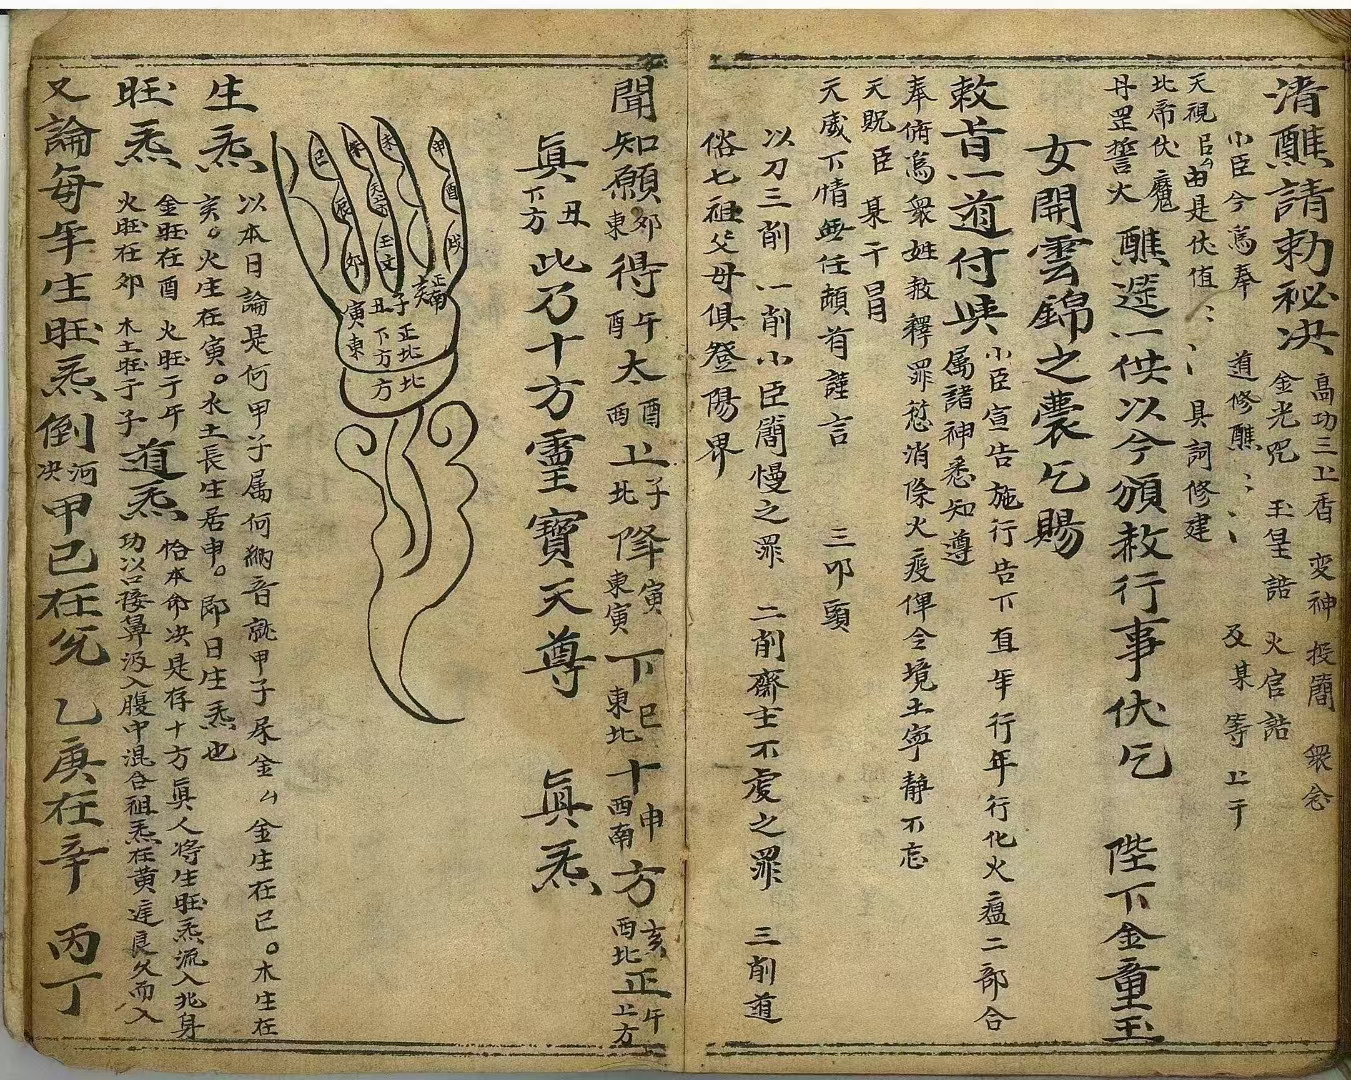 清醮請勅秘决 高功三上香 变神 投簡 衆念
金光咒 玉皇誥 火官誥
小臣今爲奉 道修醮 及某等上干
天視 臣由是伏值 具詞修建
北帝伏魔
丹罡誓火 醮筵一供以今頒赦行事伏乞 陛下金童玉
女開雲錦之囊乞賜
敕旨一道付與 小臣宣告施行告下直年行年行化火瘟二部合
属諸神悉知遵
奉俯爲衆姓赦釋罪愆消除火疫俾令境土寧靜不忘
天貺 臣某干冒
天威下情無任 有謹言 三叩頭
以刀三削 一削小臣簡慢之罪 二削齋士不虔之罪 三削道
俗七祖父母俱登陽界
聞知願 郊東 得 午酉 太 酉西 上 子北 降 寅東寅 下 巳東北 十 申西南 方 亥西北 正 午上方
眞 丑下方 此乃十方靈寶天尊 眞炁
甲 酉 戌
未
午
巳 辰 卯
玉文
寅東 丑下方 子正北
方北
以本日論是何甲子属何納音就甲子屎金 金生在巳。木生在
生炁 亥。火生在寅。水土長生居申。即日生炁也
旺炁 金旺在酉 火旺于午
火旺在卯 木土旺于子
道炁 恰本命决是存十方眞人将生旺炁流入兆身
功以口接鼻汲入腹中混合祖炁在黄庭良久而入
又論每年生旺炁倒 河决 甲已在兊 乙庚在辛 丙丁